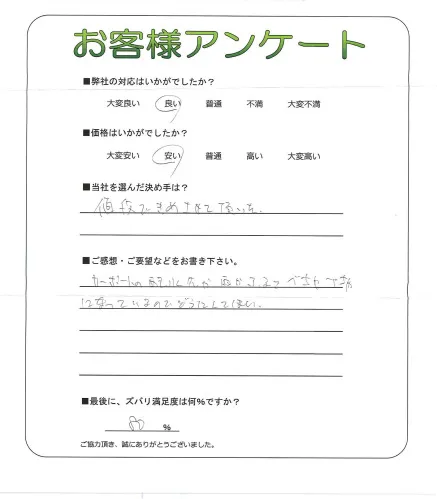 お客様アンケート
■弊社の対応はいかがでしたか？
大変良い 良い 普通 不満 大変不満
■価格はいかがでしたか？
大変安い 安い 普通 高い 大変高い
■当社を選んだ決め手は？
値段できめさせて頂いた.
■ご感想・ご要望などをお書き下さい。
カーポートの が雨がふると
になっているのでどうにかしてほしい.
■最後に、ズバリ満足度は何％ですか？
80 ％
ご協力頂き、誠にありがとうございました。